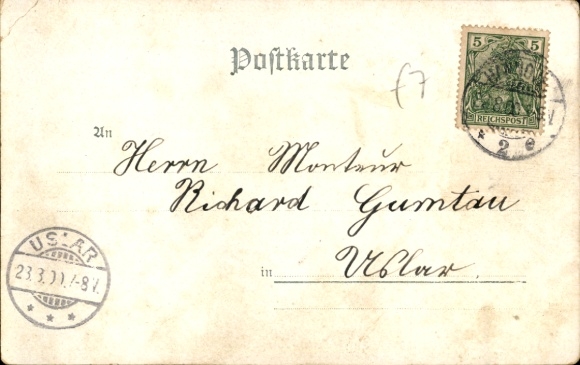 Postkarte
f7
5 5
REICHSPOST
2 e
An
Herrn Monteur
Richard Gumtau
in Uslar.
USLAR